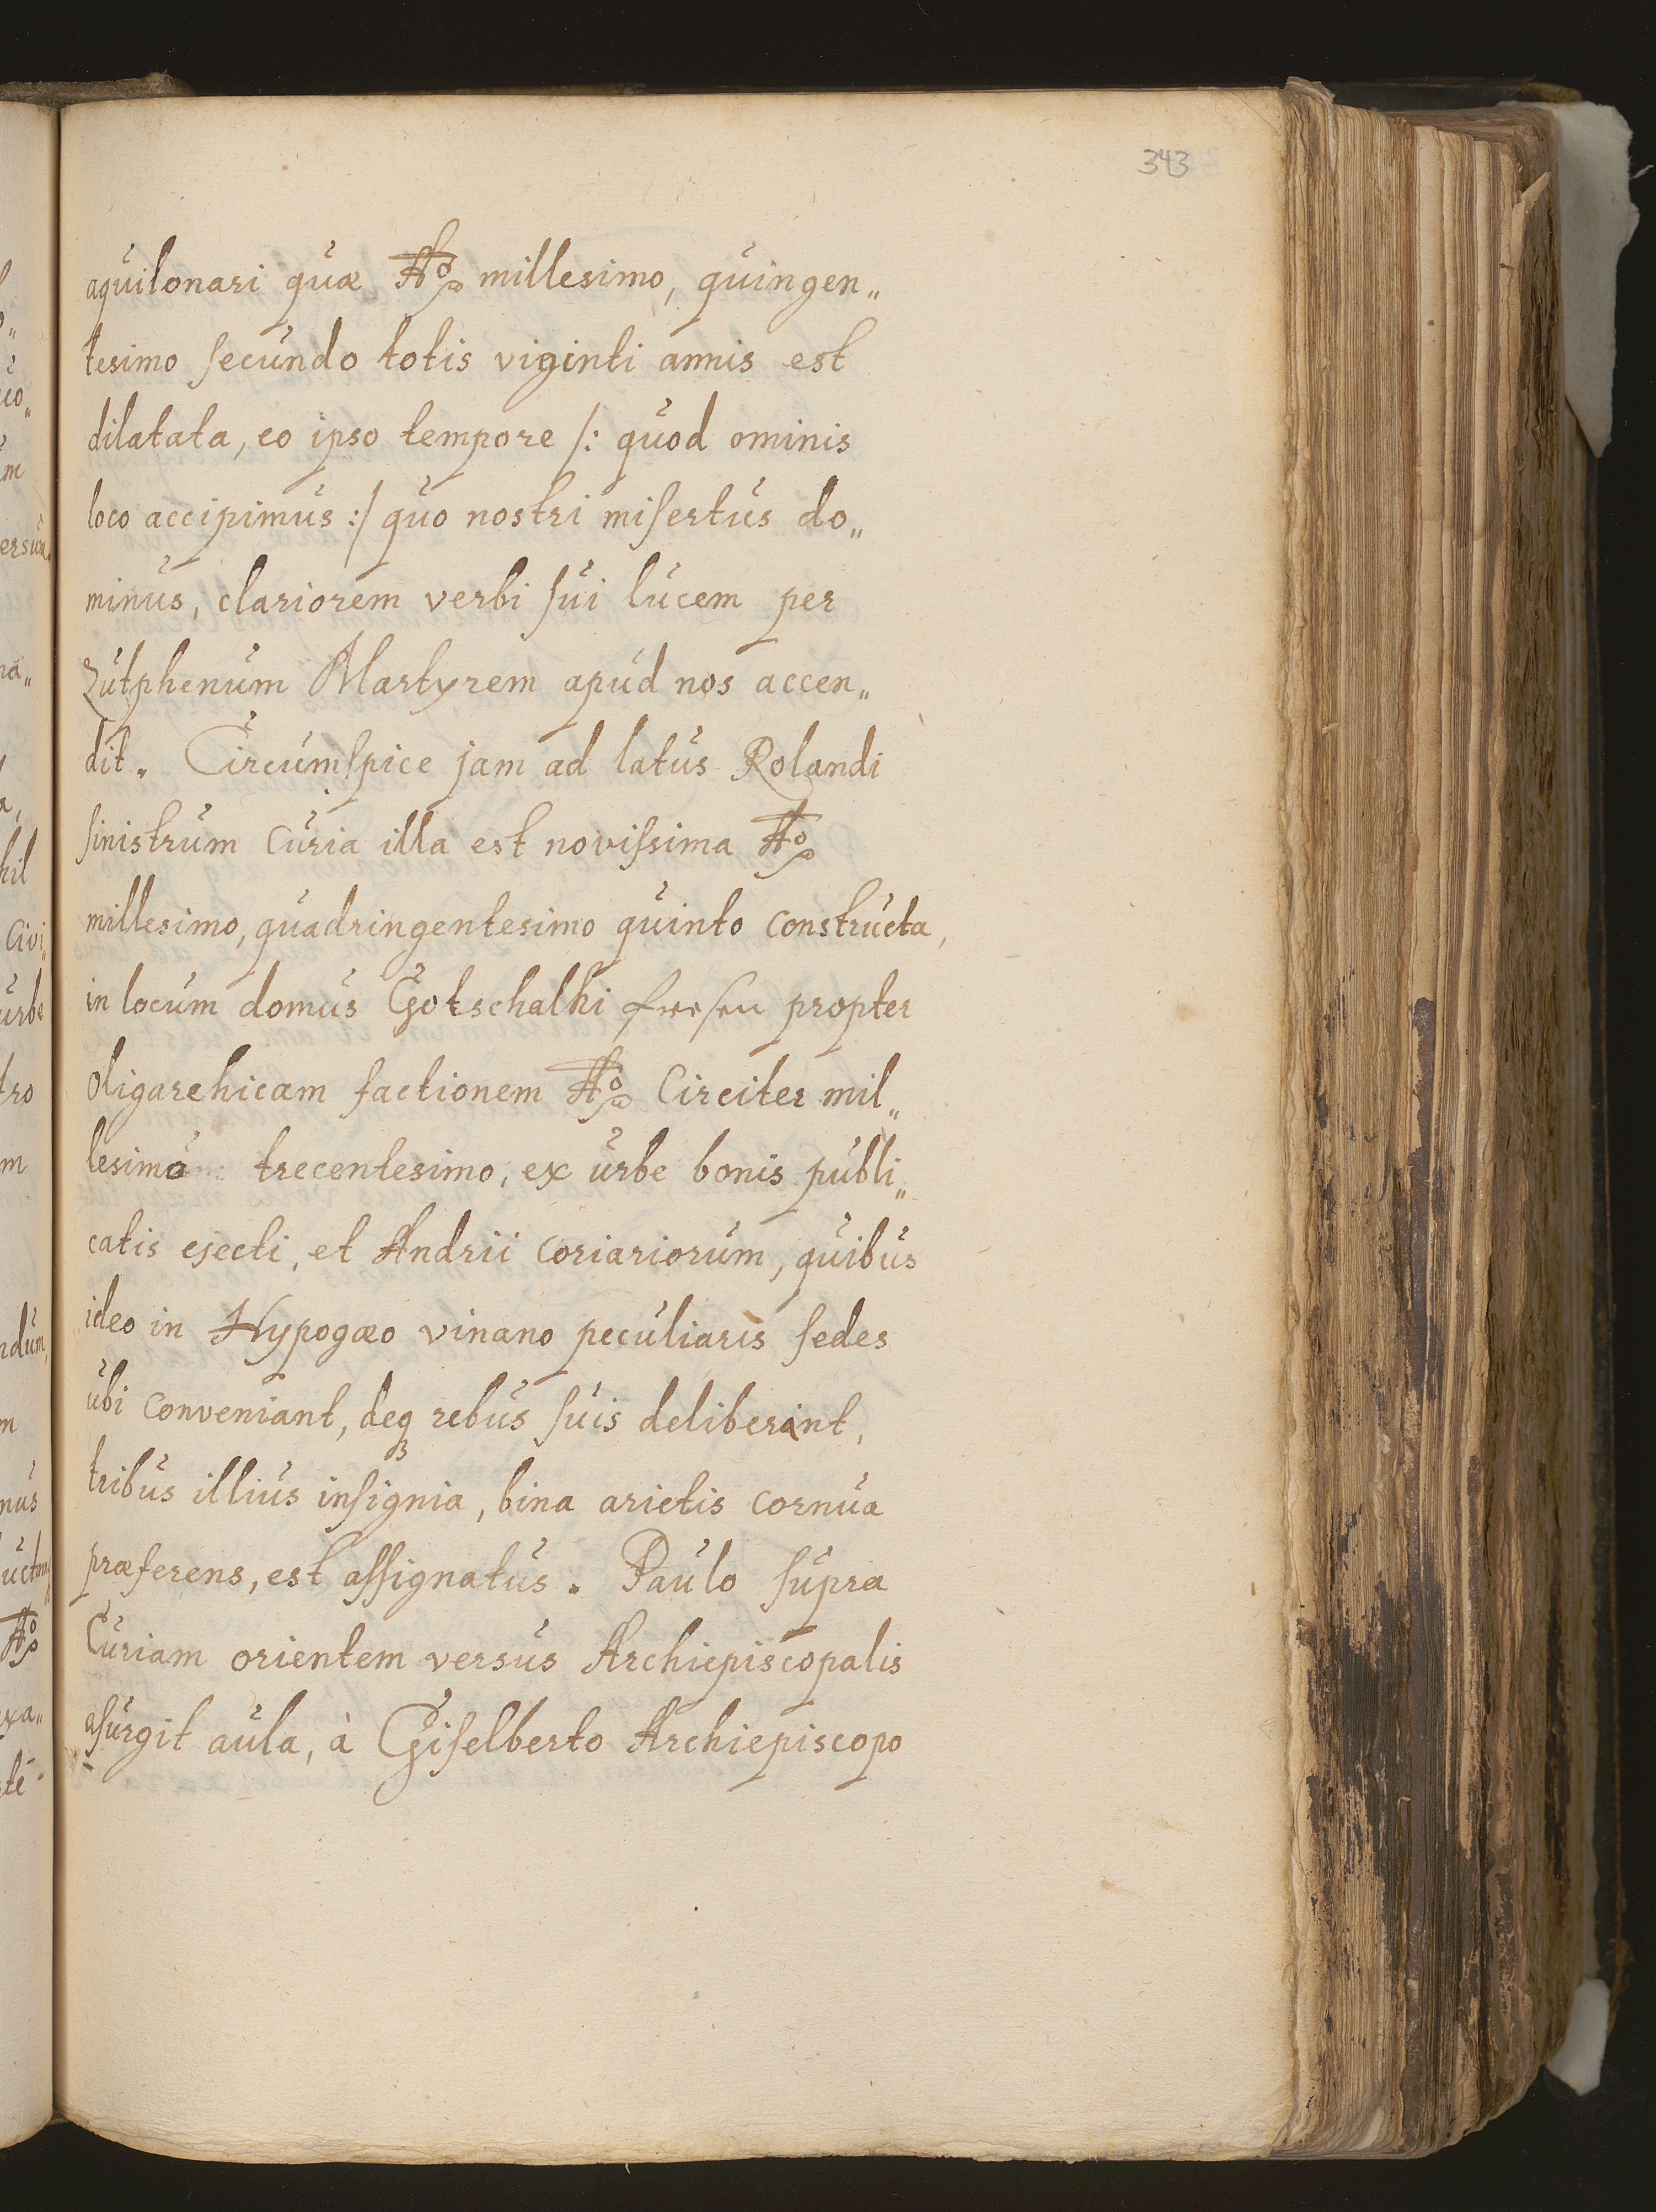 343
aquilonari quæ Aº millesimo, quingen„
tesimo secundo totis viginti annis est
dilatata, eo ipso tempore /: quod ominis
loco accipimus :/ quo nostri misertus do„
minus, clariorem verbi sui lucem per
Zutphenum Martyrem apud nos accen„
dit. Circumspice jam ad latus Rolandi
sinistrum Curia illa est novissima Aº
millesimo, quadringentesimo quinto constructa,
in locum domus Gotschalki fresen propter
oligarchicam factionem Aº Circiter mil„
lesimo trecentesimo, ex urbe bonis publi„
catis ejecti, et Andrii coriariorum, quibus
ideo in Hypogæo vinano peculiaris sedes
ubi conveniant, deq₃ rebus suis deliberant,
tribus illius insignia, bina arietis cornua
præferens, est assignatus. Paulo supra
Curiam orientem versus Archiepiscopalis
asurgit aula, à Giselberto Archiepiscopo